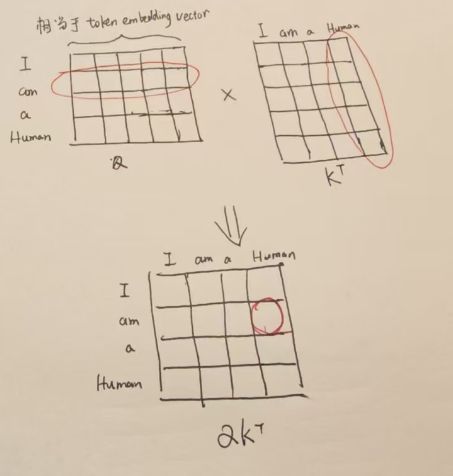 相当于 token embedding vector
I
am
a
Human
Q
×
I am a Human
K^T
I am a Human
I
am
a
Human
QK^T